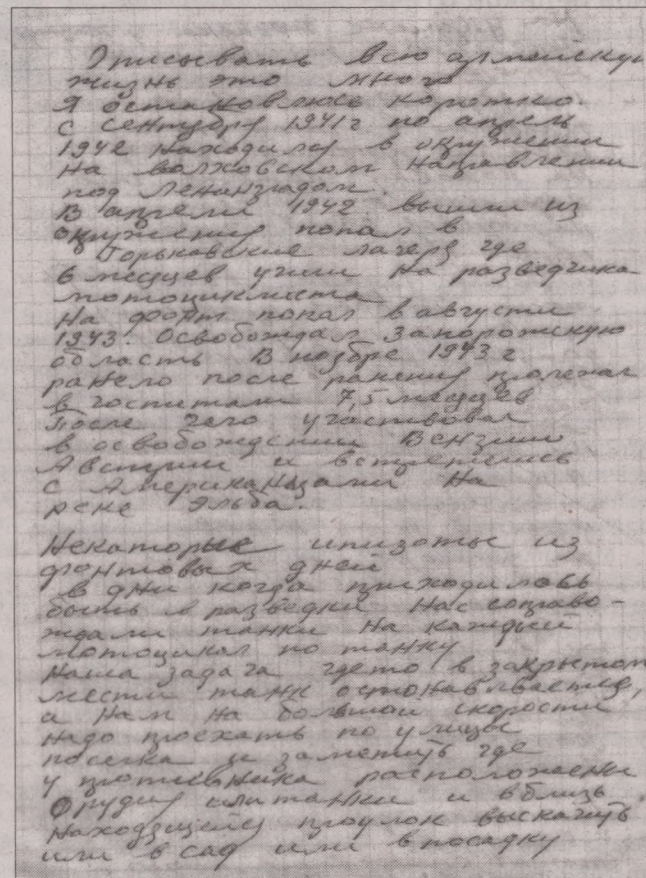 Описывать всю армейскую
жизнь это много
Я остановлюсь коротко.
с сентября 1941г по апрель
1942 находился в окружении
на волховском направлении
под Ленинградом.
В апрели 1942 вышли из
окружения попал в
Горьковские лагеря где
6 месяцев учили на разведчика
мотоциклиста
На фронт попал в августи
1943. Освобождал Запорожскую
область В ноябре 1943 г
ранело после ранения пролежал
в госпитали 7,5 месяцев
После чего участвовал
в освобождении Венгрии
Австрии и встретились
с Американцами на
реке Эльба.
Некаторые ипизоты из
фронтовых дней
в дни когда приходилось
быть в разведки нас сопрово-
ждали танки на каждый
мотоцикл по танку
Наша задача где то в закрытом
мести танк остонавливается,
а нам на большой скорости
надо проехать по улицы
поселка и заметить где
у противника расположены
Орудия или танки и вблизь
находящейся проулок выскачить
или в сад или в посадку